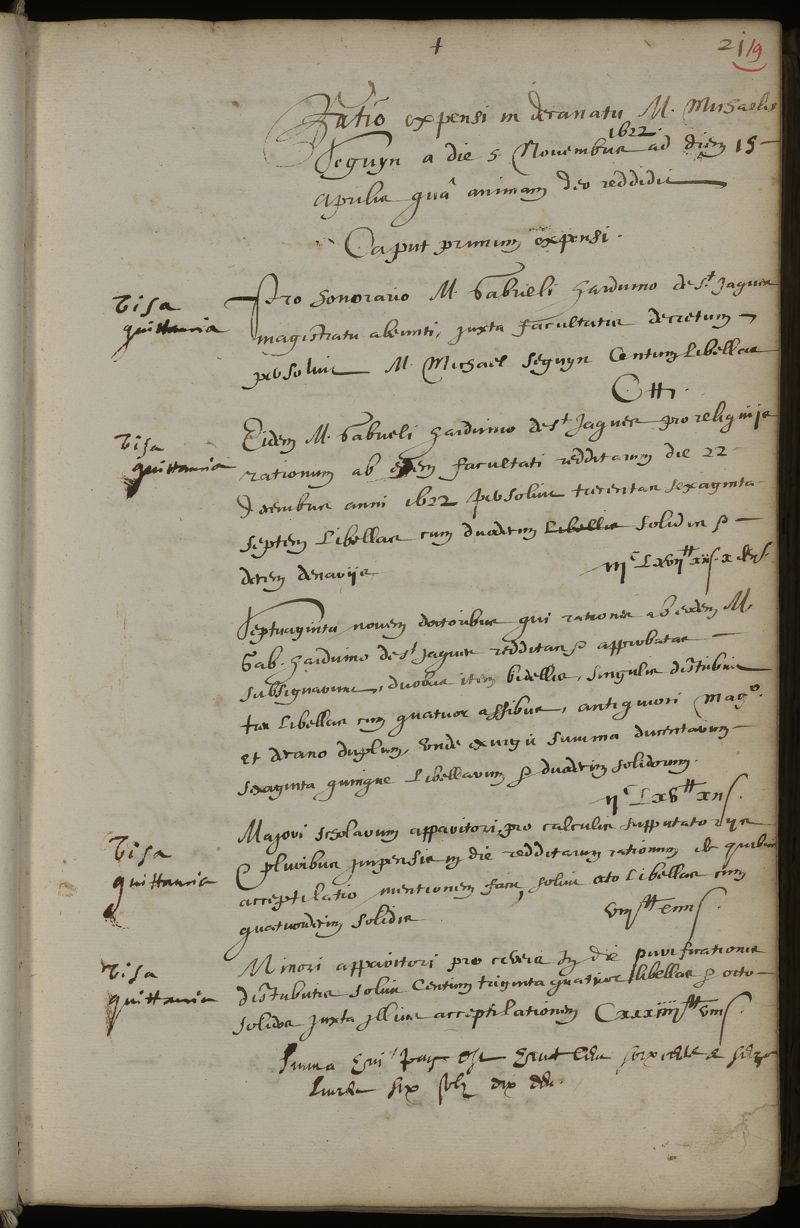 +
21 19
Ratio expensi in decanatu M. Michaelis
Seguyn a die 5 Novembris 1622 ad diem 15
Aprilis quâ animam deo reddidit
Caput primum expensi.
Visa
quittancia
Pro honorario M. Gabrieli Harduino de St Jaques
magistratu abeunti, juxta facultatis decretum
persolvit M. Michael Seguyn Centum libellas
C tt.
Visa
quittancia
Eidem M. Gabrieli Harduino de St Jaques pro reliquijs
rationum ab eodem facultati redditarum die 22
Decembris anni 1622 persolvit trecentas sexaginta
septem libellas cum duodecim libellis solidis &
decem denarijs
iijc Lxvijtt xijs. x den.
Septuaginta novem doctoribus qui rationes ab eodem M.
Gab. Harduino de St Jaques redditas & approbatas
subsignarunt, duobus item bidellis, singulis distribuit
tres libellas cum quatuor assibus, antiquiori Mago.
et decano duplum, unde exurgit summa ducentarum
sexaginta quinque libellarum & duodecim solidorum.
ijc Lxvtt xijs.
Visa
quittancia
Majori scholarum apparitori pro calculis supputatorijs
& pluribus impensis in die redditarum rationum de quibus
acceptilatio mentionem facit, solvit octo libellas cum
quatuordecim solidis
viijtt xiiijs.
Visa
quittancia
Minori apparitori pro cereis in die purificationis
distributis solvit Centum triginta quatuor libellas & octo
solidos juxta illius acceptilationem Cxxxiiijtt viijs.
Summa huit cens soixante & seize
livres six solz dix den.